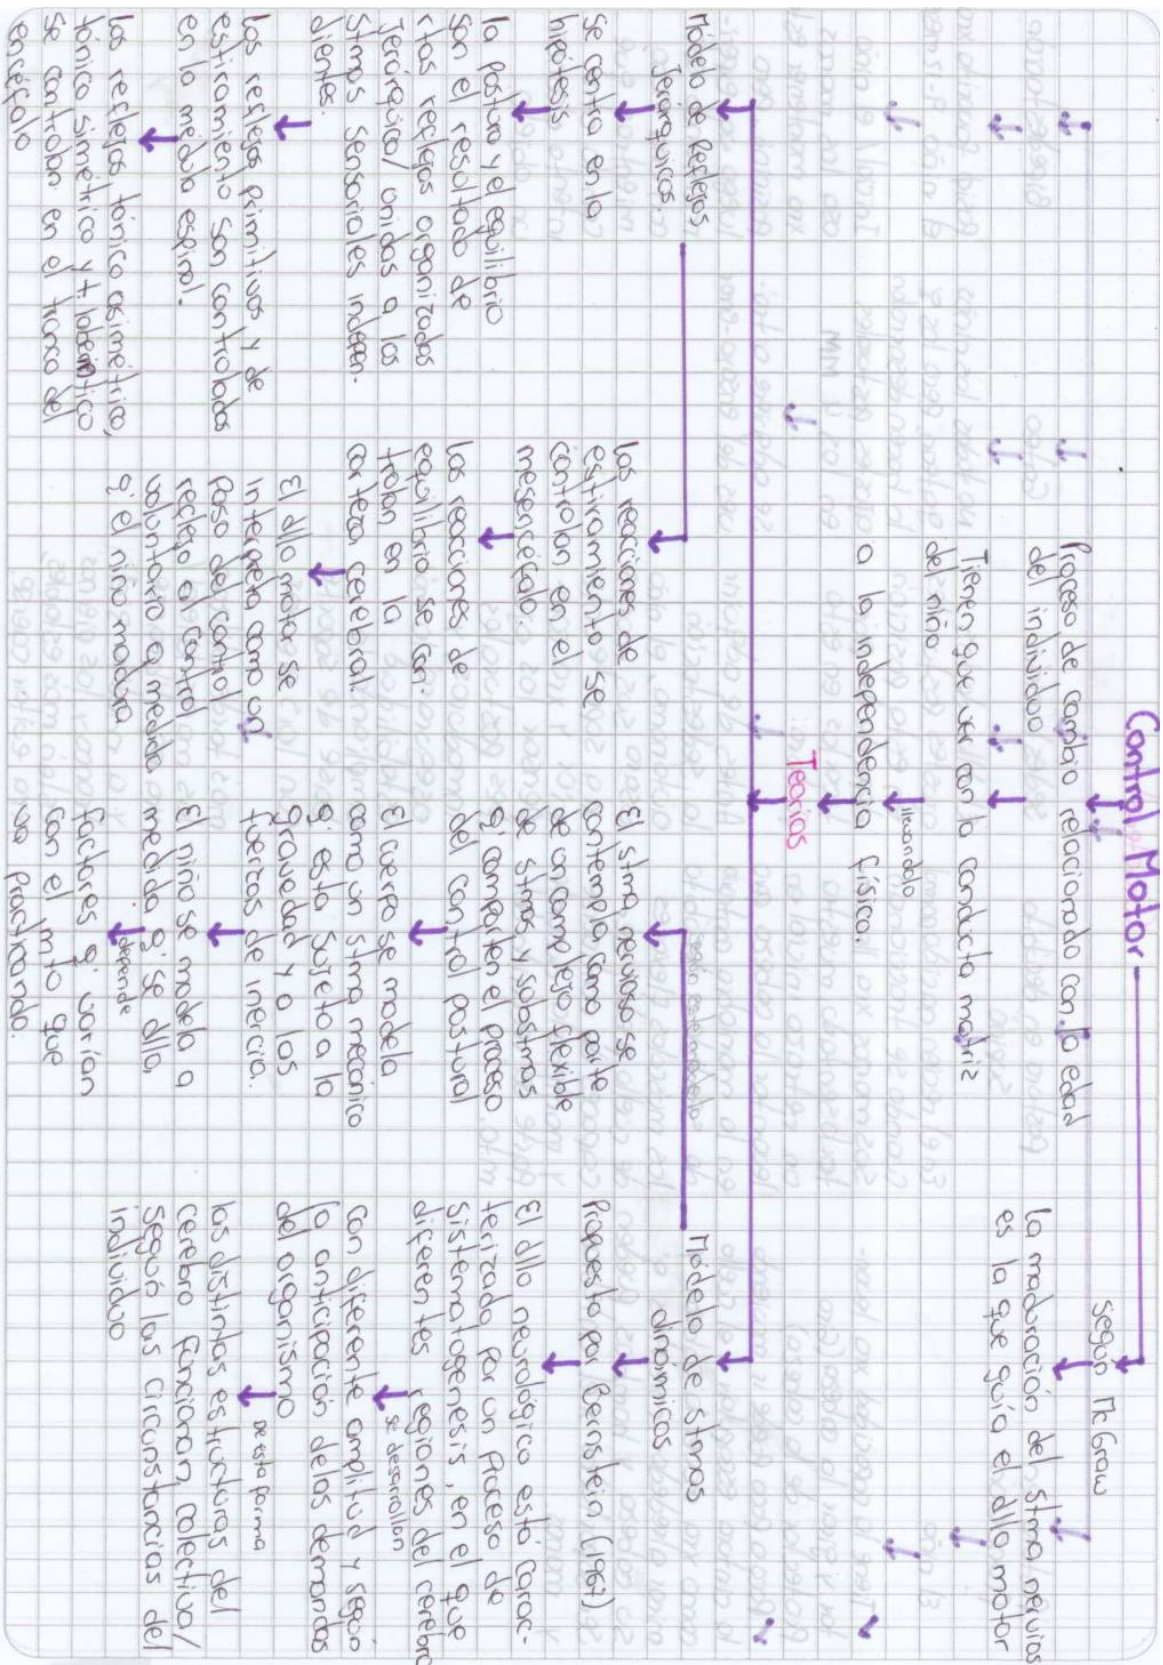 Control Motor
Proceso de cambio relacionado con la edad
del individuo
Tienen que ver con la conducta motriz
del niño
llevandolo
a la independencia física.
Según McGraw
la maduración del stma nervios
es la que guía el dllo motor
Teorías
Módelo de Reflejos
Jerárquicos.
Se centra en la
hipótesis
la postura y el equilibrio
son el resultado de
rtas reflejas organizadas
Jerárquica/ unidas a los
stmas sensoriales indepen-
dientes.
los reflejos primitivos y de
estiramiento son controlados
en la médula espinal.
los reflejos, tónico asimétrico,
tónico simétrico y t. laberintico
se controlan en el tronco del
encéfalo
los reacciones de
estiramiento se
controlan en el
mesencéfalo.
los reacciones de
equilibrio se con-
trolan en la
corteza cerebral.
El dllo motor se
interpreta como un
paso del control
reflejo al control
voluntario a medida
q' el niño madura
Módelo de stmas
dinámicos
El stma nervioso se
contempla como parte
de un complejo flexible
de stmas y substmas
q' comparten el proceso
del control postural
El cuerpo se modela
como un stma mecánico
q' esta sujeto a la
gravedad y a las
fuerzas de inercia.
El niño se modela a
medida q' se dlla,
depende
factores q' varían
con el mto que
va practicando.
Propuesto por Bernstein (1967)
El dllo neurológico está carac-
terizado por un proceso de
sistematogenesis, en el que
diferentes regiones del cerebro
se desarrollan
con diferente amplitud y según
la anticipación de las demandas
del organismo
De esta forma
las distintas estructuras del
cerebro funcionan colectiva/
según las circunstancias del
individuo